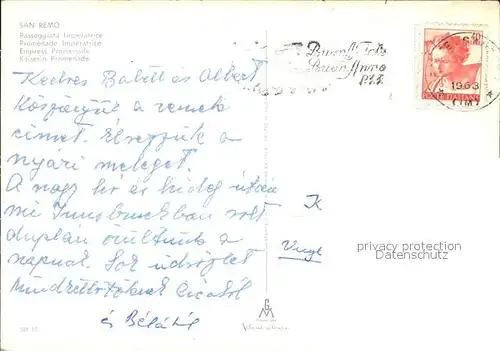 SAN REMO
Passeggiata Imperatrice
Promenade Impératrice
Empress Promenade
Kaiserin Promenade
Kedves Babett és Albert
Köszönjük a remek
címet. Élvezzük a
nyári meleget.
A nagy hó és hideg után
mi Innsbruckban volt
duplán örültünk a
napnak. Sok üdvözlet
Mindkettőtöknek Cicától
és Bélától
Buone Feste
Buon Anno
P.T.T.
1963
POSTE ITALIANE
K
privacy protection
Datenschutz